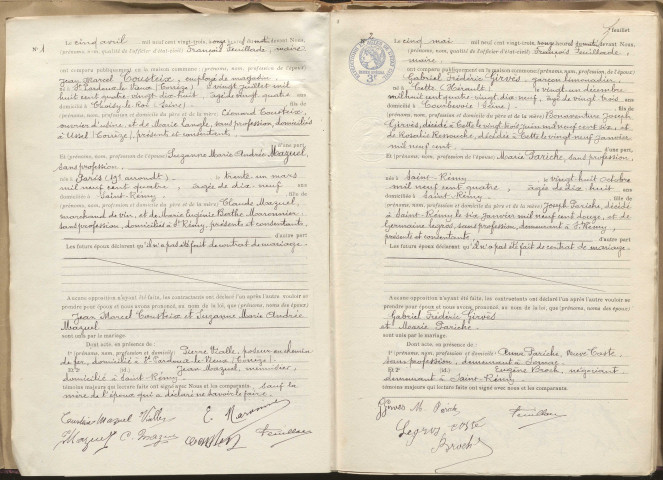 N° 1
Le cinq avril mil neuf cent vingt-trois, onze heures du matin devant Nous,
(prénoms, nom, qualité de l'officier d'état-civil) François Feuillarde, maire
ont comparu publiquement en la maison commune : (prénoms, nom, profession, de l'époux)
Jean Marcel Cousteix, employé de magasin,
né à St Pardoux le Vieux (Corrèze) le vingt juillet mil
huit cent quatre vingt dix huit, âgé de vingt quatre ans
domicilié à Choisy le Roi (Seine) fils de
(prénoms, nom, profession et domicile du père et de la mère) Léonard Cousteix,
ouvrier d'usine, et de Marie Langle, sans profession, domiciliés
à Ussel (Corrèze), présents et consentants,
d'une part
Et (prénoms, nom, profession de l'épouse) Suzanne Marie Andrée Mazuel,
sans profession,
née à Paris le trente un mars
mil neuf cent quatre, âgée de dix neuf ans
domiciliée à Saint-Rémy fille de
(prénoms, nom, profession et domicile du père et de la mère) Claude Mazuel,
marchand de vin, et de Marie Eugénie Berthe Maronnier,
sans profession, domiciliés à St Rémy, présents et consentants
d'autre part
Les futurs époux déclarent qu'il n'a pas été fait de contrat de mariage.
Aucune opposition n'ayant été faite, les contractants ont déclaré l'un après l'autre vouloir se
prendre pour époux et nous avons prononcé, au nom de la loi, que (prénoms, noms des époux)
Jean Marcel Cousteix et Suzanne Marie Andrée
Mazuel
sont unis par le mariage.
Dont acte, en présence de :
1° (prénoms, nom, profession et domicile) Pierre Vialle, poseur au chemin
de fer, domicilié à St Pardoux le Vieux (Corrèze)
Et 2° (id.) Jean Mazuel, menuisier,
domicilié à Saint-Rémy
témoins majeurs qui lecture faite ont signé avec Nous et les comparants, sauf la
mère de l'époux qui a déclaré ne savoir le faire.
Cousteix Mazuel Vialle
Mazuel
Feuillarde
feuillet
N° 2
Le cinq mai mil neuf cent vingt-trois, devant Nous,
(prénoms, nom, qualité de l'officier d'état-civil) François Feuillarde,
maire
ont comparu publiquement en la maison commune : (prénoms, nom, profession, de l'époux)
Gabriel Frédéric Girvès, garçon limonadier,
né à Cette (Hérault) le vingt un décembre
mil huit cent quatre vingt dix neuf, âgé de vingt trois ans
domicilié à Courbevoie (Seine) fils de
(prénoms, nom, profession et domicile du père et de la mère) Bonaventure Joseph
Girvès, décédé à Cette le vingt trois juin mil neuf cent six, et
de décédée à Cette le vingt neuf janvier
mil neuf cent
d'une part,
Et (prénoms, nom, profession de l'épouse) Marie Pariche, sans profession,
née à Saint-Rémy le vingt huit octobre
mil neuf cent quatre, âgée de dix huit ans
domiciliée à Saint-Rémy fille de
(prénoms, nom, profession et domicile du père et de la mère) Joseph Pariche, décédé
à Saint-Rémy le six janvier mil neuf cent douze, et de
Germaine Legros, sans profession, demeurant à St Rémy,
présente et consentante,
d'autre part
Les futurs époux déclarent qu'il n'a pas été fait de contrat de mariage.
Aucune opposition n'ayant été faite, les contractants ont déclaré l'un après l'autre vouloir se
prendre pour époux et nous avons prononcé, au nom de la loi, que (prénoms, noms des époux)
Gabriel Frédéric Girvès
et Marie Pariche
sont unis par le mariage.
Dont acte, en présence de :
1° (prénoms, nom, profession et domicile) Anna Pariche, veuve Coste
sans profession, demeurant à
Et 2° (id.) Eugène Broch, négociant
demeurant à Saint-Rémy
témoins majeurs qui lecture faite ont signé avec nous et les comparants.
Girves M. Parich
Feuillarde
Legros Coste
Broch